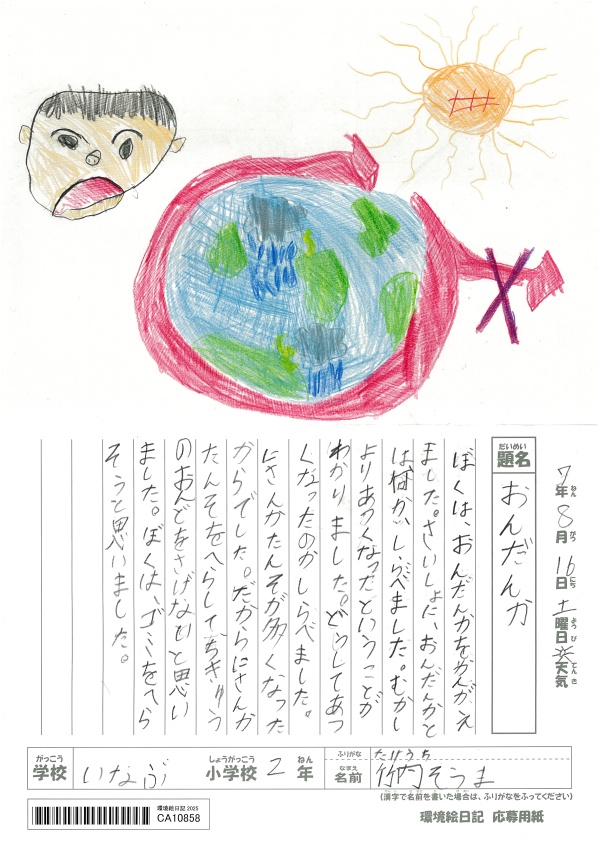 7年ねん8月がつ16日にち土曜日ようび 天気てんき
題名だいめい おんだんか
ぼくは、おんだんかをかんがえ
ました。さいしょに、おんだんかと
は何かしらべました。むかし
よりあつくなったということが
わかりました。どうしてあつ
くなったのかしらべました。
にさんかたんそが多くなった
からでした。だからにさんか
たんそをへらして、ちきゅう
のおんどをさげないと思い
ました。ぼくは、ゴミをへら
そうと思いました。
学校がっこう いなぶ 小学校しょうがっこう 2年ねん
ふりがな たけうち
名前なまえ 竹内そうま
(漢字で名前を書いた場合は、ふりがなをふってください)
環境絵日記 2025
CA10858
環境絵日記 応募用紙